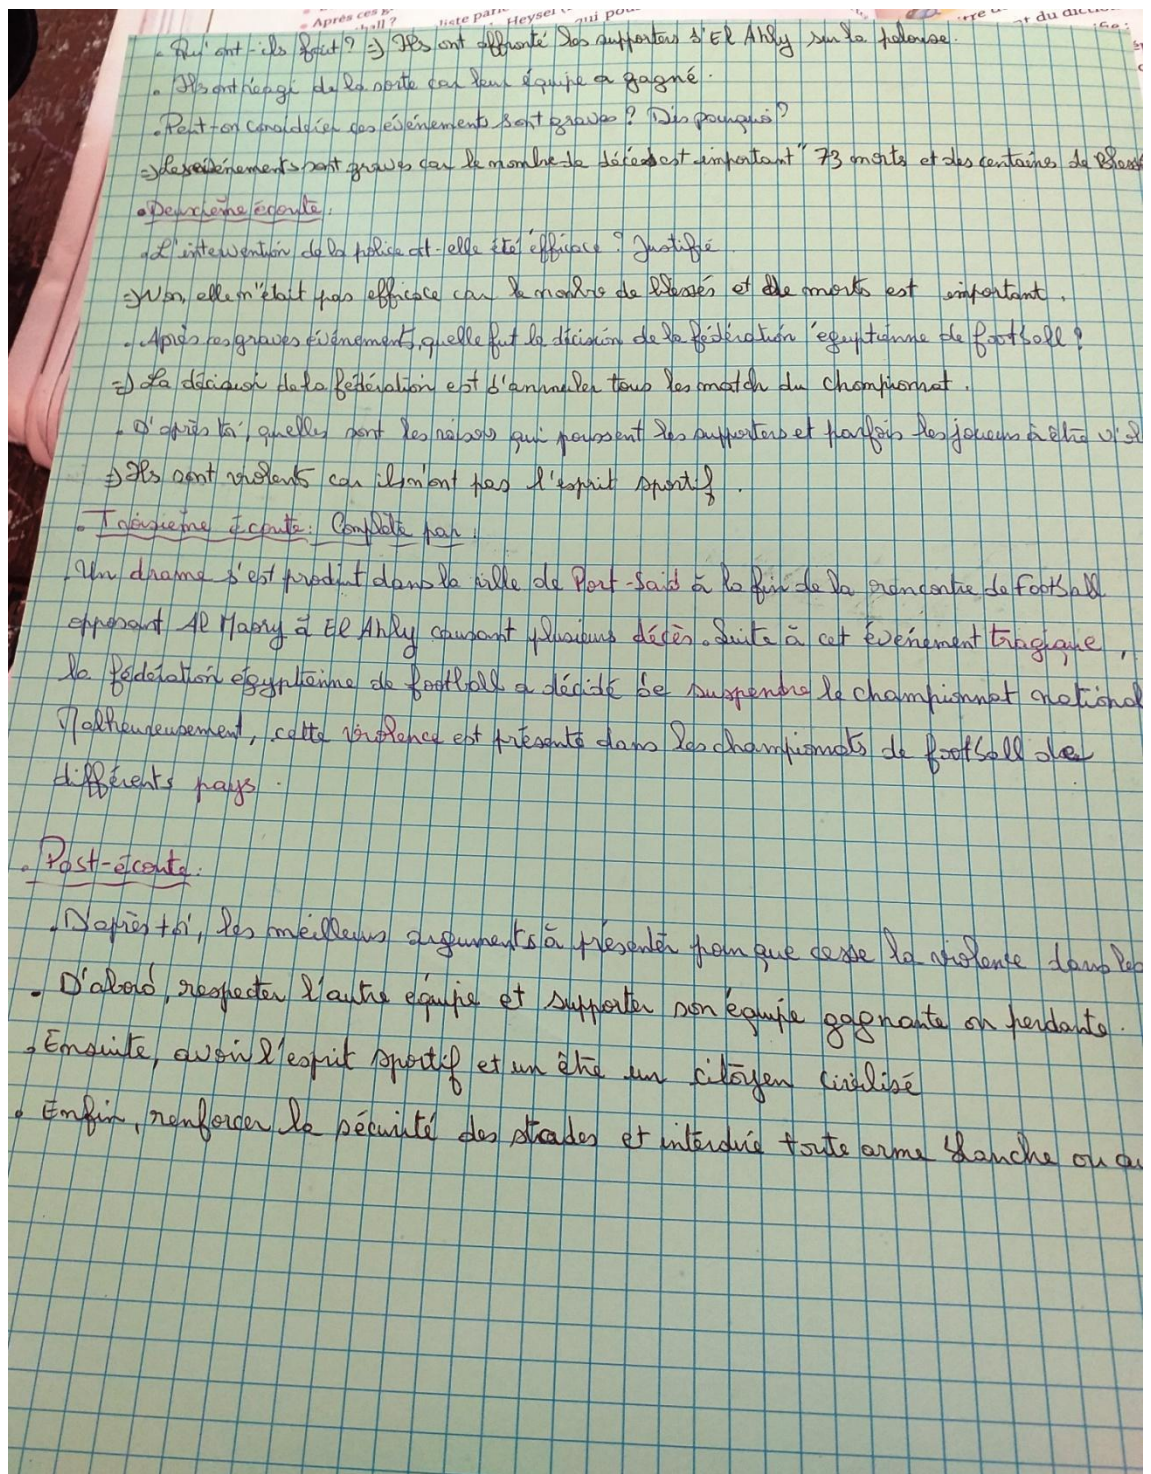 Après ces
liste par
Heysel
qui pou
du dict
. Qu'ont-ils fait? => Ils ont affronté les supporters d'El Ahly sur la pelouse.
. Ils ont réagi de la sorte car leur équipe a gagné.
. Peut-on considérer ces événements sont graves? Dis pourquoi?
=> Les événements sont graves car le nombre de décès est important " 73 morts et des centains de bless
. Deuxième écoute:
. L'intervention de la police at-elle été efficace? Justifié
=> Non, elle n'était pas efficace car le nombre de blessés et de morts est important.
. Après ces graves événements, quelle fut la décision de la fédération égyptienne de football?
=> La décision de la fédération est d'annuler tous les match du championnat.
. D'après toi, quelles sont les raisons qui poussent les supporters et parfois les joueurs à être viol
=> Ils sont violents car ils n'ont pas l'esprit sportif.
. Troisième écoute: Complète par:
. Un drame s'est produit dans la ville de Port-Saïd à la fin de la rencontre de football
opposant Al Masry à El Ahly causant plusieurs décès. Suite à cet événement tragique,
la fédération égyptienne de football a décidé de suspendre le championnat national
Malheureusement, cette violence est présente dans les championnats de football de
différents pays.
. Post-écoute:
. D'après toi, les meilleurs arguments à présenter pour que cesse la violente dans les
. D'abord, respecter l'autre équipe et supporter son équipe gagnante ou perdante.
. Ensuite, avoir l'esprit sportif et un être un citoyen civilisé
. Enfin, renforcer la sécurité des stades et interdire toute arme blanche ou au